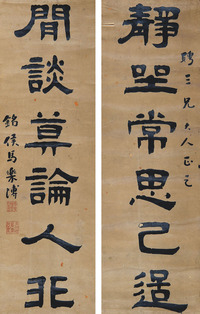 靜坐常思己過
聘三兄大人正之
閒談莫論人非
銘侯馬樂溥